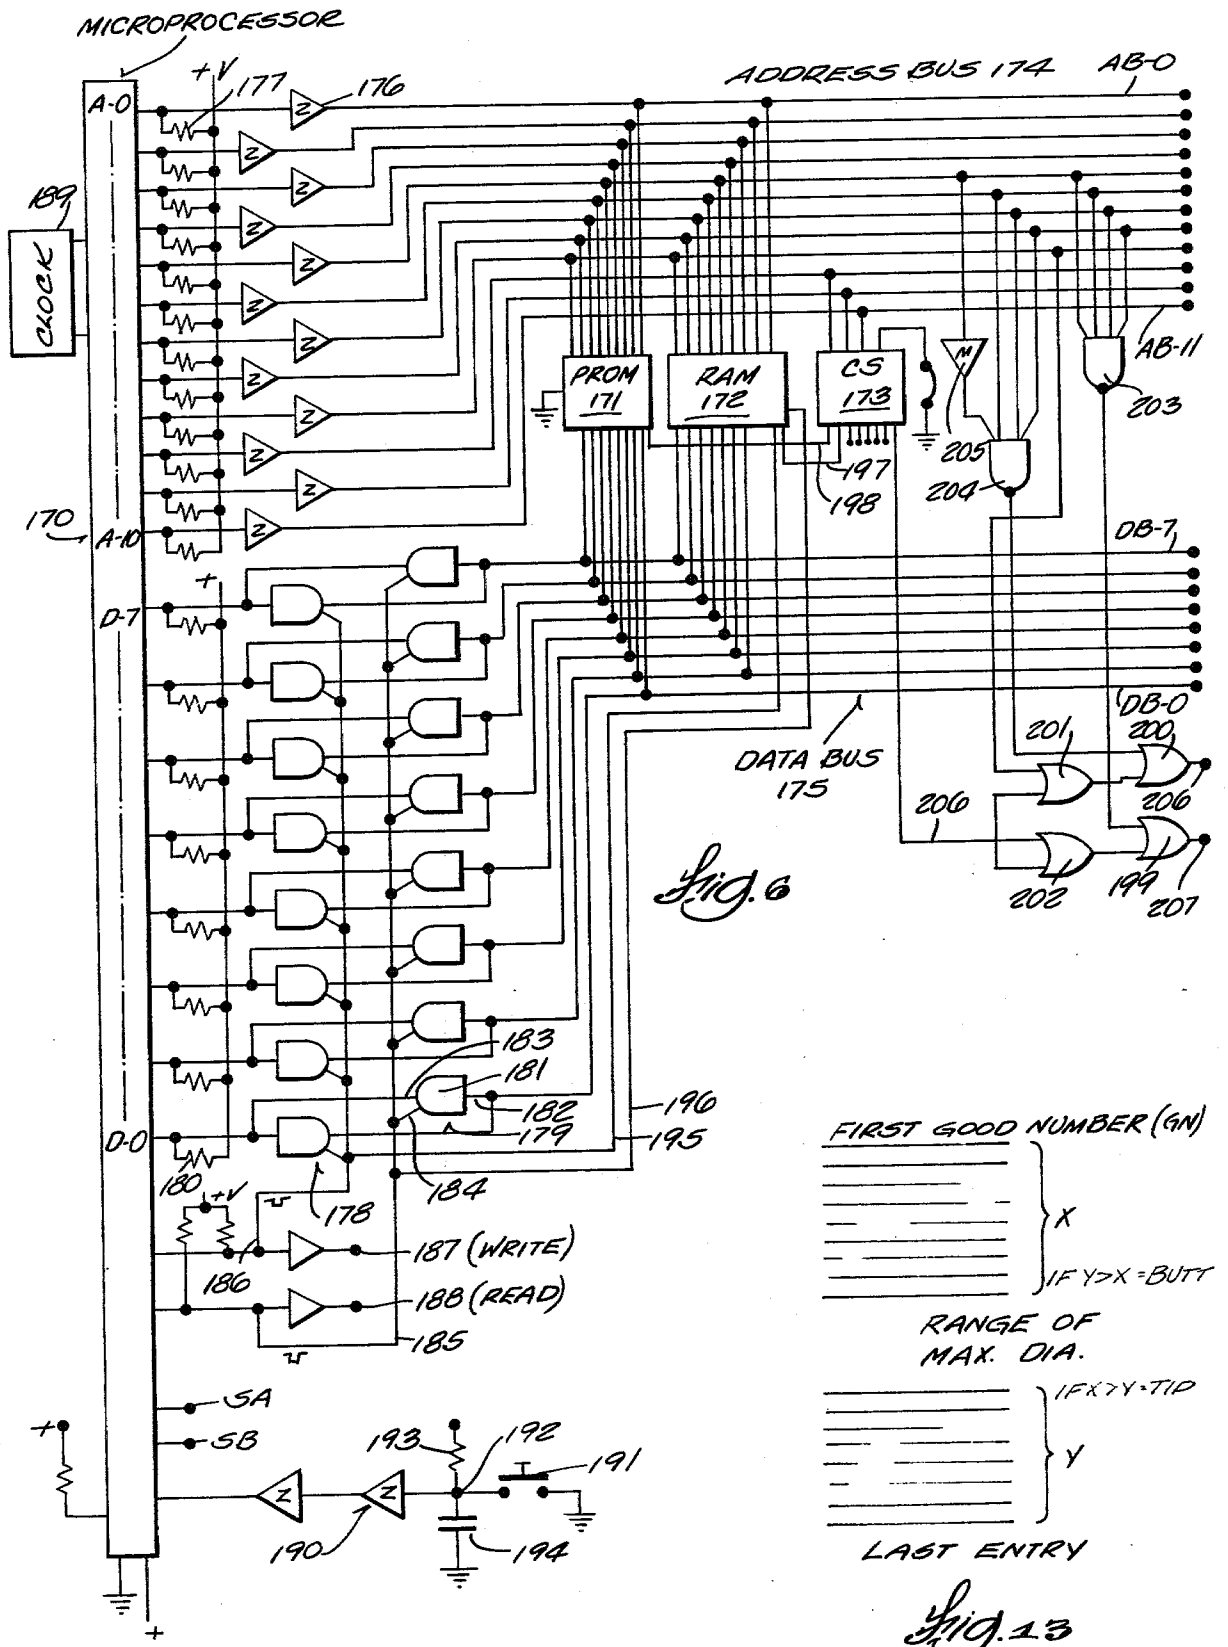 MICROPROCESSOR
+V
177
176
ADDRESS BUS 174
AB-0
A-0
189
CLOCK
Z
Z
Z
Z
Z
Z
Z
Z
Z
Z
Z
Z
PROM
171
RAM
172
CS
173
AB-11
203
205
204
197
198
170
A-10
+
D-7
DB-7
DB-0
DATA BUS
175
201
200
206
206
202
199
207
Fig. 6
183
181
182
179
196
195
D-0
180
+V
178
184
186
187 (WRITE)
188 (READ)
185
SA
SB
+
193
192
191
Z
Z
190
194
+
FIRST GOOD NUMBER (GN)
X
IF Y>X = BUTT
RANGE OF
MAX. DIA.
IF X>Y = TIP
Y
LAST ENTRY
Fig. 13